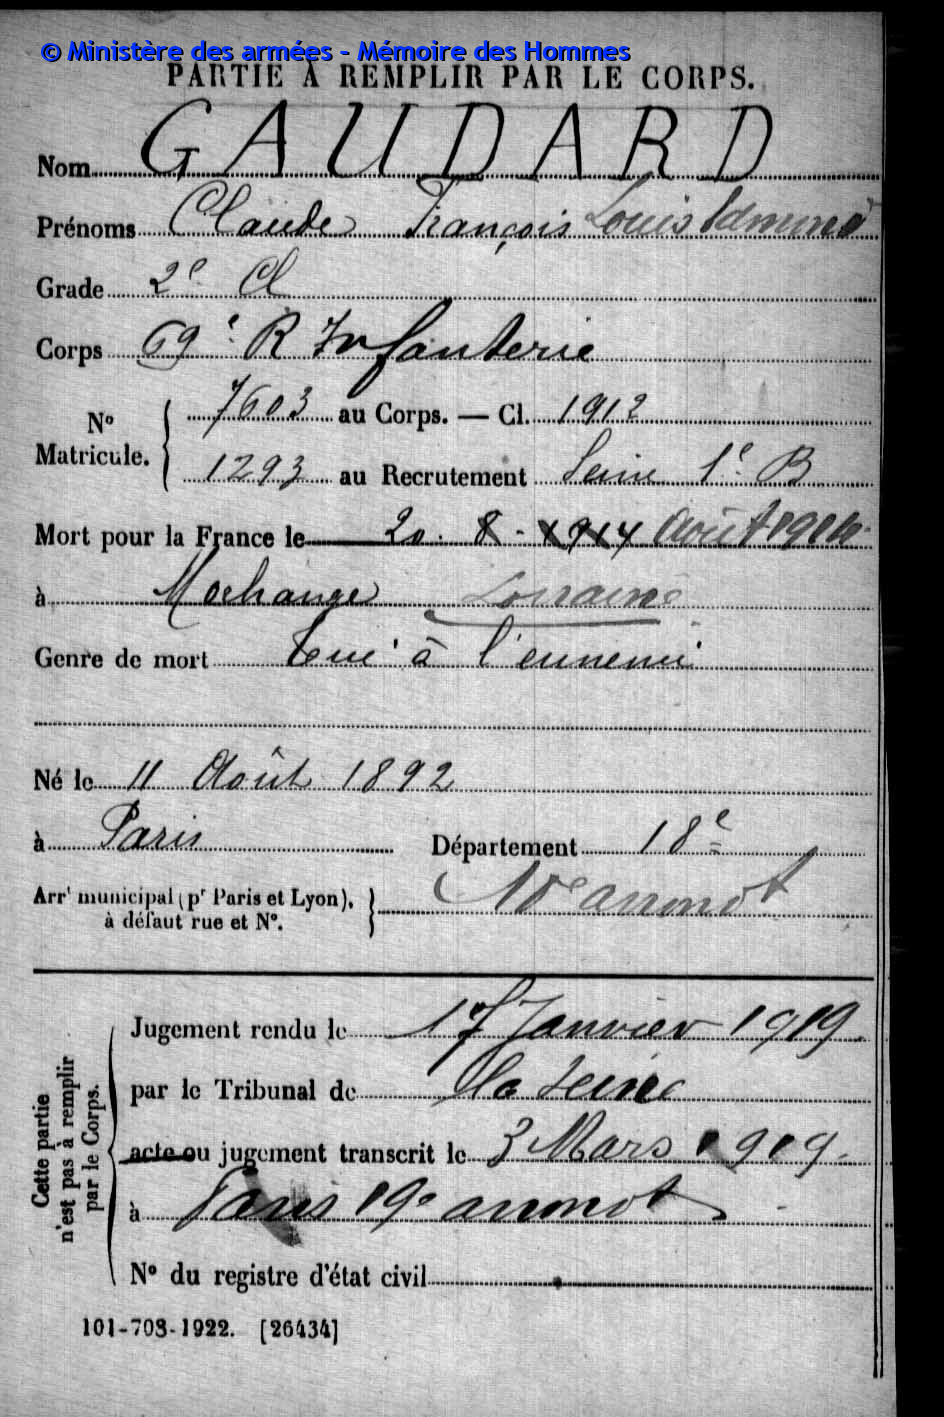 © Ministère des armées - Mémoire des Hommes
PARTIE À REMPLIR PAR LE CORPS.
Nom GAUDARD
Prénoms Claude François Louis Edmond
Grade 2e Cl
Corps 69e R Infanterie
No Matricule. { 7603 au Corps. — Cl. 1912
1293 au Recrutement Seine 1e B
Mort pour la France le 20. 8 - 1914 Août 1914
à Morhange Lorraine
Genre de mort tué à l'ennemi
Né le 11 Août 1892
à Paris Département 18e
Arrt municipal (pr Paris et Lyon), à défaut rue et No. } 10e arrondt
Cette partie n'est pas à remplir par le Corps.
Jugement rendu le 17 Janvier 1919
par le Tribunal de la Seine
acte ou jugement transcrit le 3 Mars 1919.
à Paris 19e arrondt
No du registre d'état civil
101-708-1922. [26434]